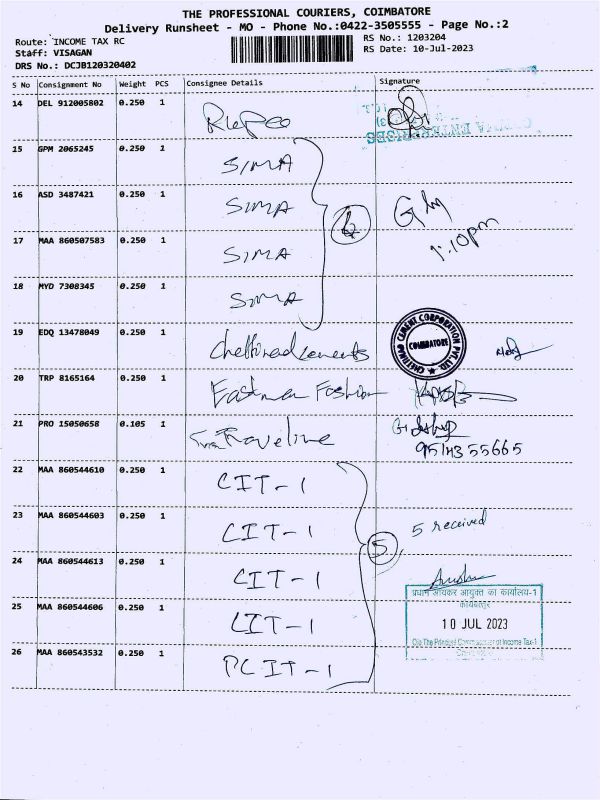 THE PROFESSIONAL COURIERS, COIMBATORE
Delivery Runsheet - MO - Phone No.:0422-3505555 - Page No.:2
Route: INCOME TAX RC
Staff: VISAGAN
DRS No.: DCJB120320402
RS No.: 1203204
RS Date: 10-Jul-2023
S No Consignment No Weight PCS Consignee Details Signature
14 DEL 912005802 0.250 1
15 GPM 2065245 0.250 1 SIMA
16 ASD 3487421 0.250 1 SIMA
17 MAA 860507583 0.250 1 SIMA
1:10pm
18 MYD 7308345 0.250 1 SIMA
19 EDQ 13478049 0.250 1 Chettinad cements
CHETTINAD CEMENT CORPORATION PVT. LTD.
COIMBATORE
20 TRP 8165164 0.250 1 Eastman Fashion
21 PRO 15050658 0.105 1 Traveline
22 MAA 860544610 0.250 1 CIT-1
23 MAA 860544603 0.250 1 CIT-1 5 5 received
24 MAA 860544613 0.250 1 CIT-1
प्रधान आयकर आयुक्त का कार्यालय-1
कोयंबत्तूर
25 MAA 860544606 0.250 1 CIT-1
10 JUL 2023
O/o The Principal Commissioner of Income Tax-1
26 MAA 860543532 0.250 1 PCIT-1